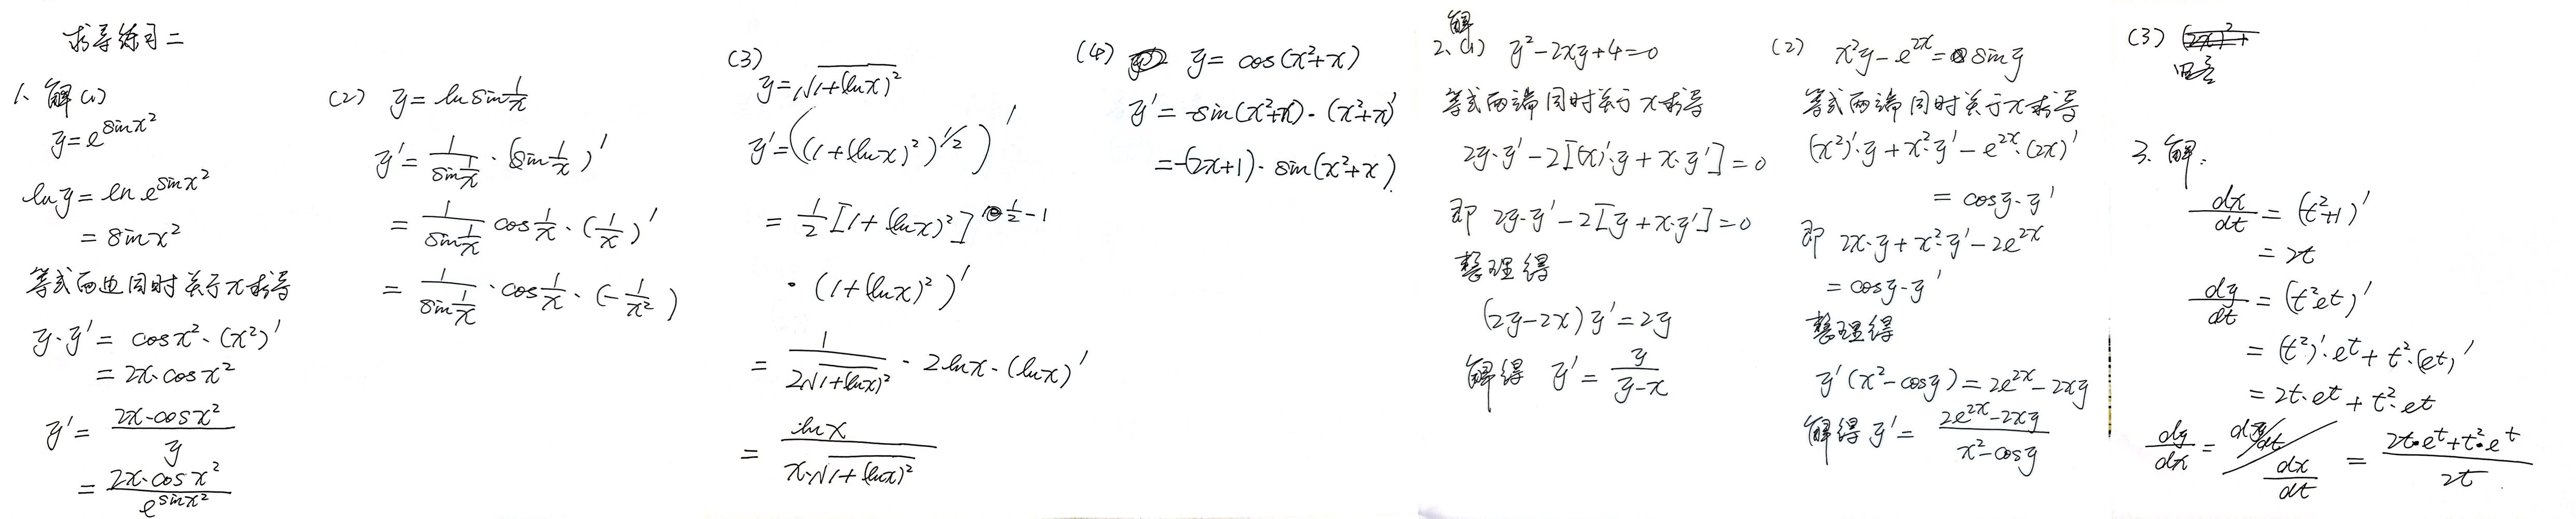 求导练习二
1、解(1)
y=e^{sinx²}
lny=ln e^{sinx²}
=sinx²
等式两边同时关于x求导
y·y'=cosx²·(x²)'
=2x·cosx²
y'=\frac{2x·cosx²}{y}
=\frac{2x·cosx²}{e^{sinx²}}
(2) y=ln sin\frac{1}{x}
y'=\frac{1}{sin\frac{1}{x}}·(sin\frac{1}{x})'
=\frac{1}{sin\frac{1}{x}}cos\frac{1}{x}·(\frac{1}{x})'
=\frac{1}{sin\frac{1}{x}}·cos\frac{1}{x}·(-\frac{1}{x²})
(3)
y=√(1+(lnx)²)
y'=((1+(lnx)²)^{1/2})'
=\frac{1}{2}[1+(lnx)²]^{\frac{1}{2}-1}
·(1+(lnx)²)'
=\frac{1}{2√(1+(lnx)²)}·2lnx·(lnx)'
=\frac{lnx}{x·√(1+(lnx)²)}
(4) y=cos(x²+x)
y'=-sin(x²+x)·(x²+x)'
=-(2x+1)·sin(x²+x)
解
2、(1) y²-2xy+4=0
等式两端同时关于x求导
2y·y'-2[(x)'·y+x·y']=0
即 2y·y'-2[y+x·y']=0
整理得
(2y-2x)y'=2y
解得 y'=\frac{y}{y-x}
(2) x²y-e^{2x}=siny
等式两端同时关于x求导
(x²)'·y+x²·y'-e^{2x}·(2x)'
=cosy·y'
即 2x·y+x²·y'-2e^{2x}
=cosy·y'
整理得
y'(x²-cosy)=2e^{2x}-2xy
解得y'=\frac{2e^{2x}-2xy}{x²-cosy}
(3)
略
3、解:
\frac{dx}{dt}=(t²+1)'
=2t
\frac{dy}{dt}=(t²e^t)'
=(t²)'·e^t+t²·(e^t)'
=2t·e^t+t²·e^t
\frac{dy}{dx}=\frac{dy/dt}{\frac{dx}{dt}}=\frac{2t·e^t+t²·e^t}{2t}